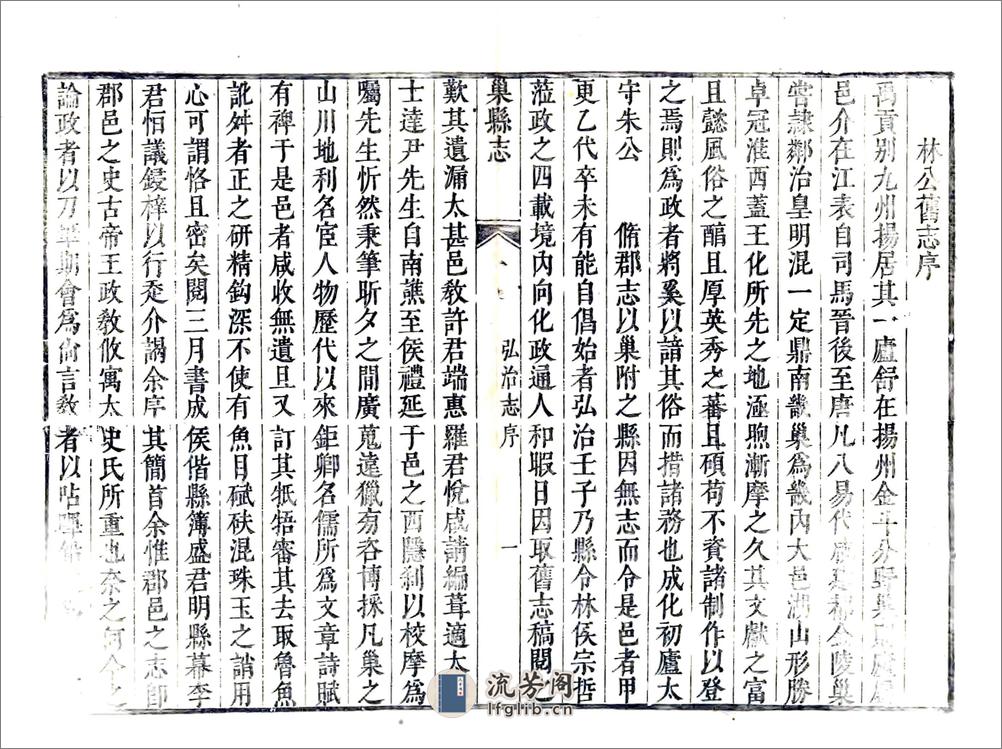 林公舊志序
禹貢别九州揚居其一廬舒在揚州金斗分野巢
邑介在江表自司馬晉後至唐凡八易代
嘗隷鄰治皇明混一定鼎南畿巢爲畿内大邑湖山形勝
卓冠淮西蓋王化所先之地涵煦漸摩之久其文獻之富
且懿風俗之醇且厚英秀之蕃且碩苟不資諸制作以登
之焉則爲政者將奚以諳其俗而措諸務也成化初廬太
守朱公 脩郡志以巢附之縣因無志而令是邑者甲
更乙代卒未有能自倡始者弘治壬子乃縣令林侯宗哲
蒞政之四載境内向化政通人和暇日因取舊志稿閱之
巢縣志
弘治志序
一
歎其遺漏太甚邑教許君端惠羅君悅咸請編葺適太
士達尹先生自南譙至侯禮延于邑之西隱刹以校摩爲
屬先生忻然秉筆昕夕之間廣蒐遠獵旁咨博採凡巢之
山川地利名宦人物歷代以來鉅卿名儒所爲文章詩賦
有裨于是邑者咸收無遺且又訂其牴牾審其去取魯魚
訛舛者正之研精鈎深不使有魚目碔砆混珠玉之誚用
心可謂恪且密矣閱三月書成侯偕縣簿盛君明縣幕李
君恒議鋟梓以行乭介謁余序其簡首余惟郡邑之志卽
郡邑之史古帝王政敎攸寓太史氏所重也奈之何今之
論政者以刀筆期會爲尚言敎者以呫嗶
流芳阁
lfglib.cn